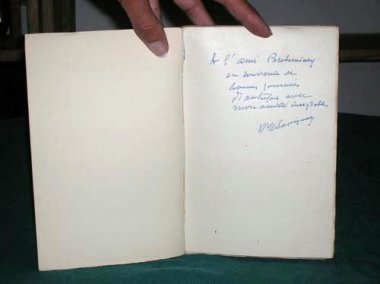 A l'ami Parcheminey
en souvenir de
bonnes journées
d'autrefois avec
mon amitié